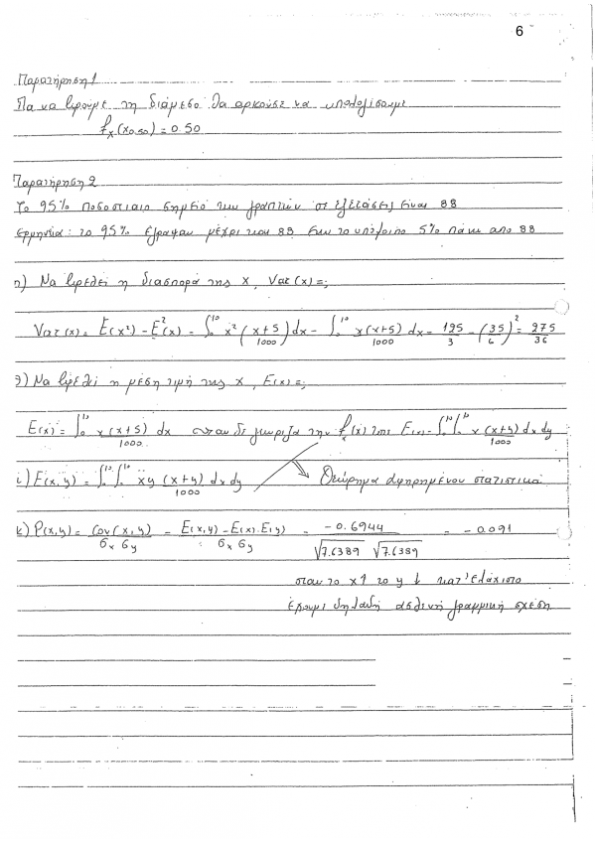 6
Παρατήρηση 1
Για να βρούμε τη διάμεσο θα αρκούσε να υπολογίσουμε
fx(x0.50) = 0.50
Παρατήρηση 2
Το 95% ποσοστιαίο σημείο των γραπτών στις εξετάσεις είναι 88
Ερμηνεία: το 95% έγραψαν μέχρι και 88 ενώ το υπόλοιπο 5% πάνω από 88
η) Να βρεθεί η διασπορά της x, Var(x)=;
Var(x) = E(x²) - E²(x) = ∫₀¹⁰ x² (x+5)/1000 dx - ∫₀¹⁰ x(x+5)/1000 dx = 125/3 - (35/6)² = 275/36
θ) Να βρεθεί η μέση τιμή της x, E(x)=;
E(x) = ∫₀¹⁰ x(x+5)/1000 dx αν δε γνώριζα την fx(x) τότε E(x) = ∫₀¹⁰∫₀¹⁰ x (x+y)/1000 dx dy
ι) E(x,y) = ∫₀¹⁰∫₀¹⁰ xy (x+y)/1000 dx dy Θεώρημα αφηρημένου στατιστικά
κ) P(x,y) = Cov(x,y)/σx σy = E(x,y) - E(x).E(y)/σx σy = -0.6944/√7.6389 √7.6389 = -0.091
όταν το x↑ το y↓ κατ' ελάχιστο
έχουμε δηλαδή ασθενή γραμμική σχέση